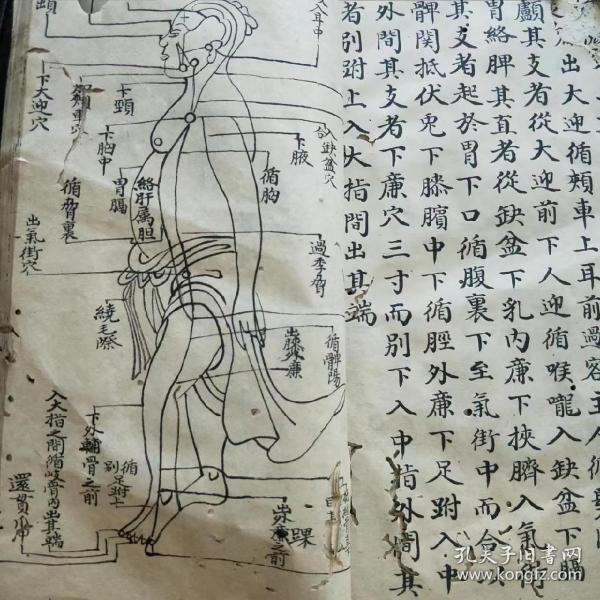 出大迎循頰車上耳前過客主人循
顱其支者從大迎前下人迎循喉嚨入缺盆下膈
胃絡脾其直者從缺盆下乳內廉下挾臍入氣街
其支者起於胃下口循腹裏下至氣街中而合
髀関抵伏兎下膝臏中下循脛外廉下足跗入中
外間其支者下廉穴三寸而別下入中指外間其
者別跗上入大指間出其端
入耳中
下大迎穴
頰車穴
下頸
下胸中
胃膈
絡肝属胆
循脅裏
出氣街穴
繞毛際
合缺盆穴
下腋
循胸
過季脅
循髀陽
出膝外廉
下外輔骨之前
循足跗上
別
入大指之間循岐骨內出其端
還貫爪甲
出外廉之前
踝
孔夫子旧书网
www.kongfz.com